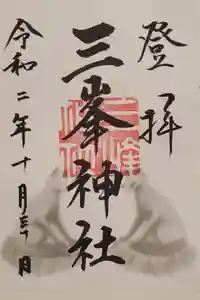 登拝
三峯神社
令和二年十月三十日